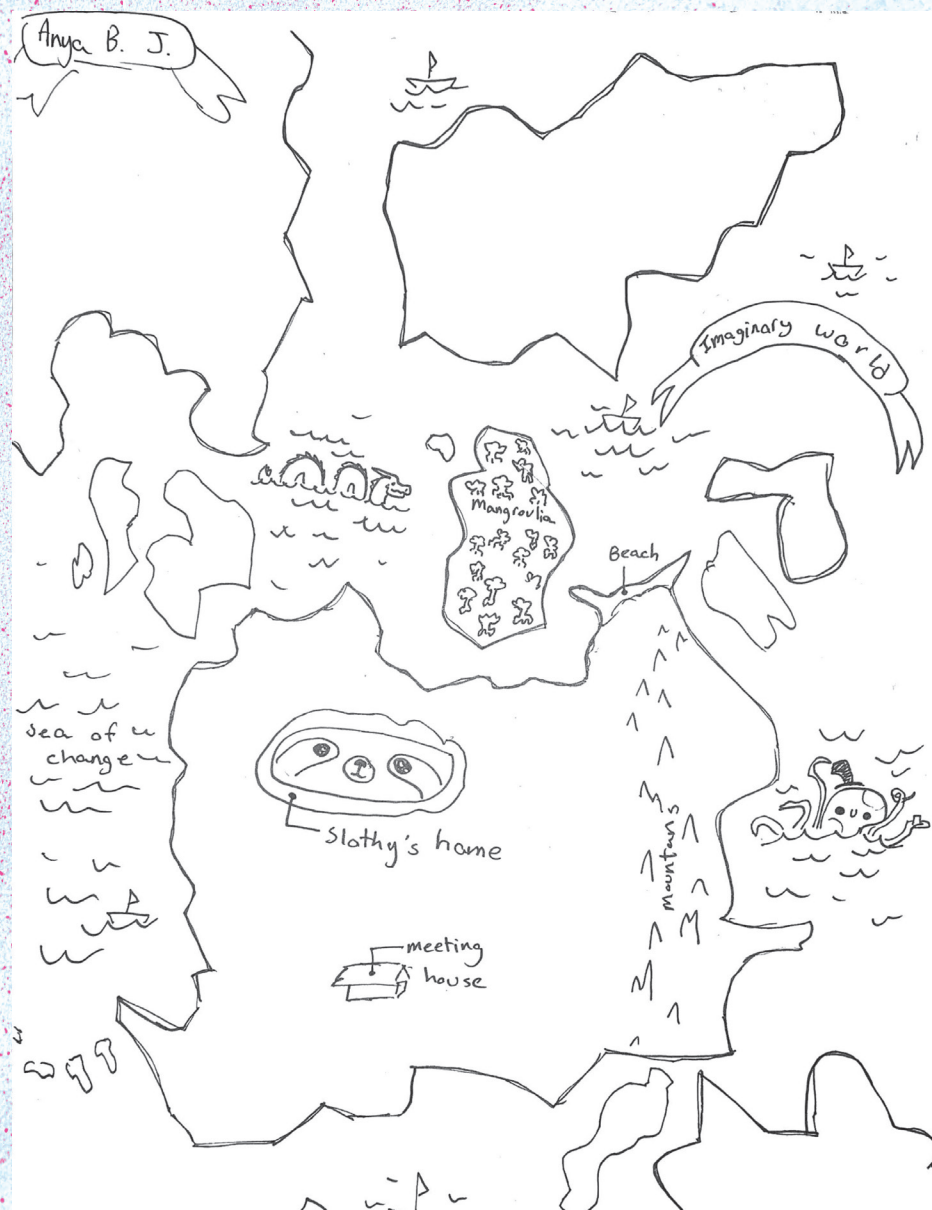 Anya B. J.
Imaginary world
Mangrovlia
Beach
sea of
change
Slothy's home
mountains
meeting
house